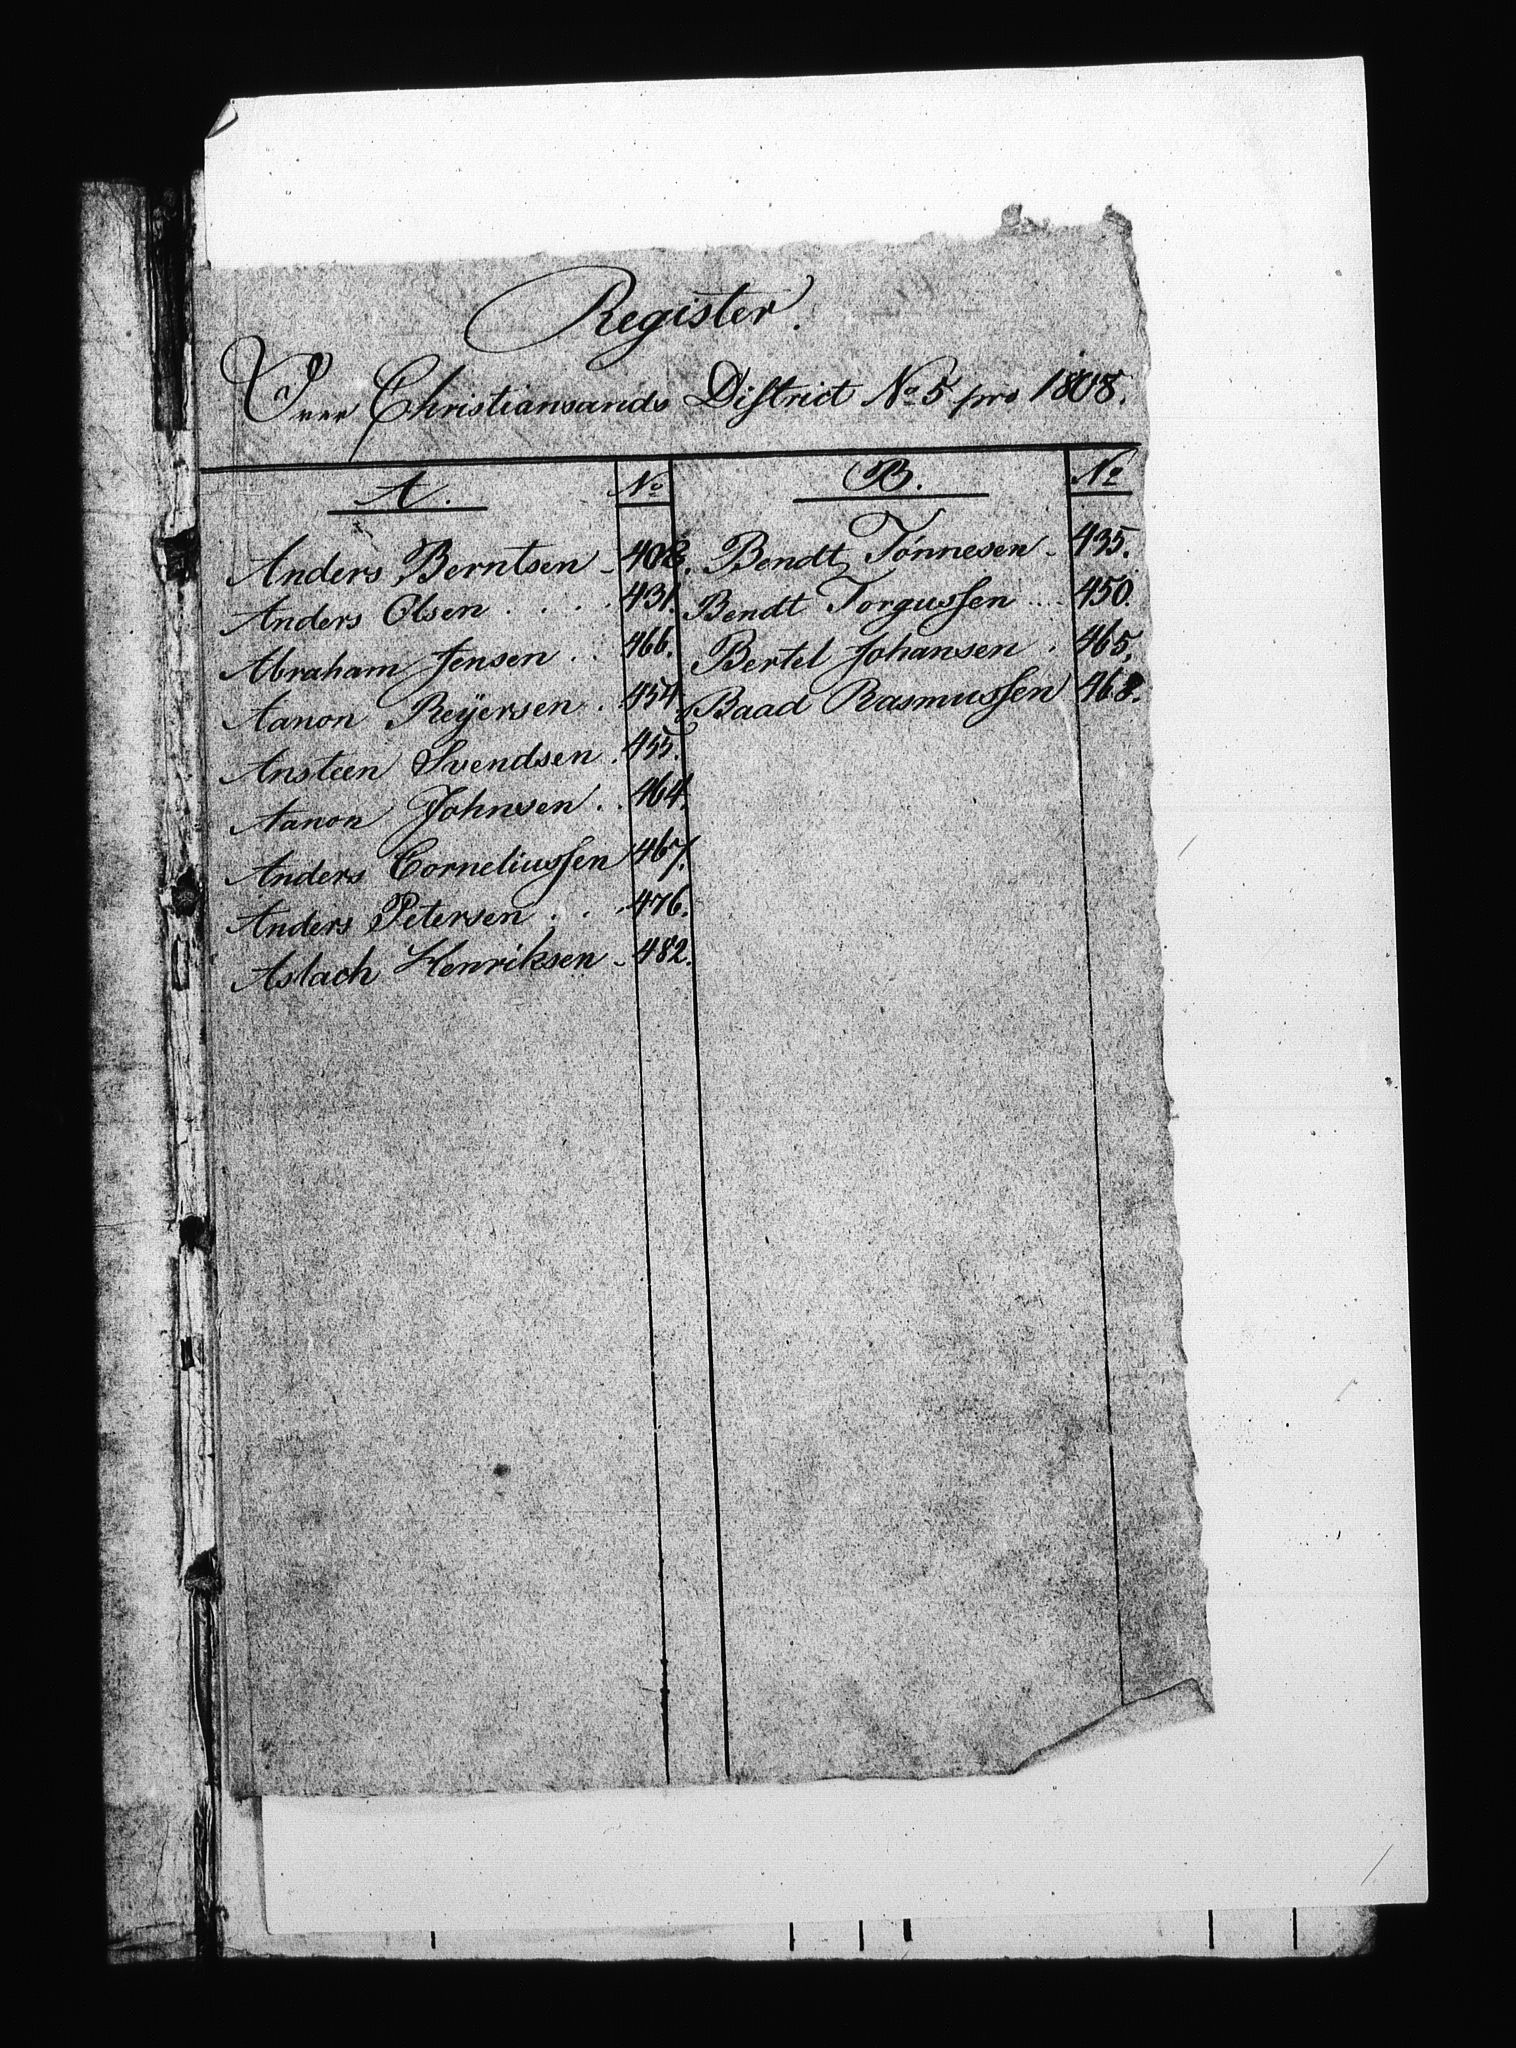 Register.
Over Christiansands District No 5 pro 1808.
A. No
Anders Berntsen 408.
Anders Olsen . . . . 431.
Abraham Jensen . . 466.
Aanon Reÿersen . 454.
Ansteen Svendsen . 455.
Aanon Johnsen . . 464.
Anders Corneliussen 467.
Anders Petersen . . . 476.
Aslach Henriksen 482.
B. No
Bendt Tönnesen 435.
Bendt Torgussen .... 450.
Bertel Johansen . 465.
Baad Rasmussen 468.